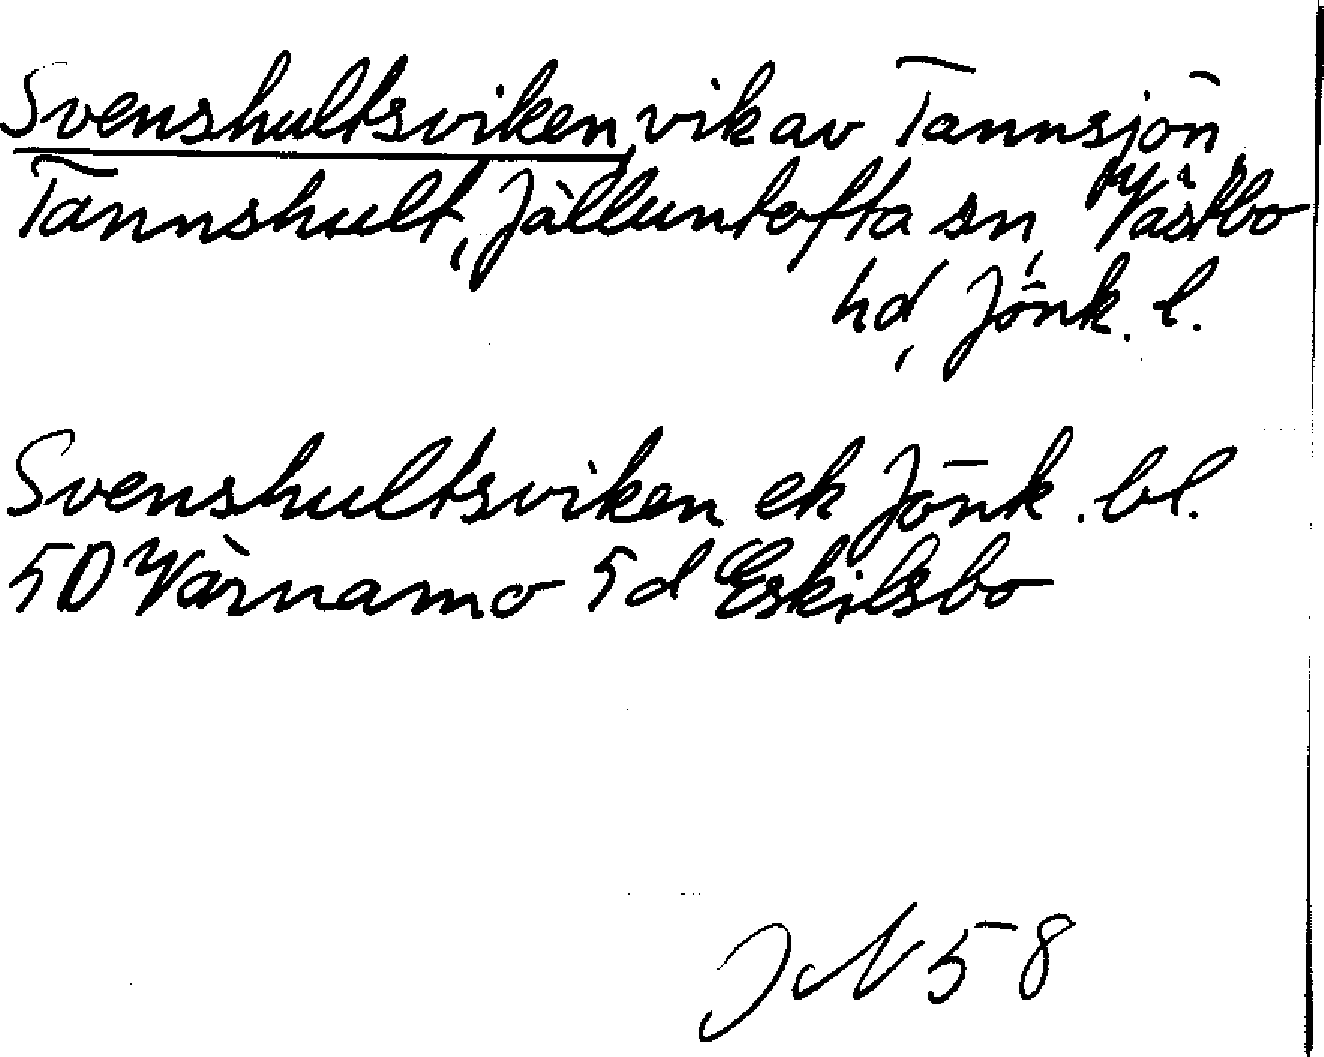 Svenshultsviken, vik av Tannsjön,
Tannshult, Jälluntofta sn, Västbo
hd, Jönk. l.
Svenshultsviken ek Jönk. bl.
5D Värnamo 5d Eskilsbo
JN 58